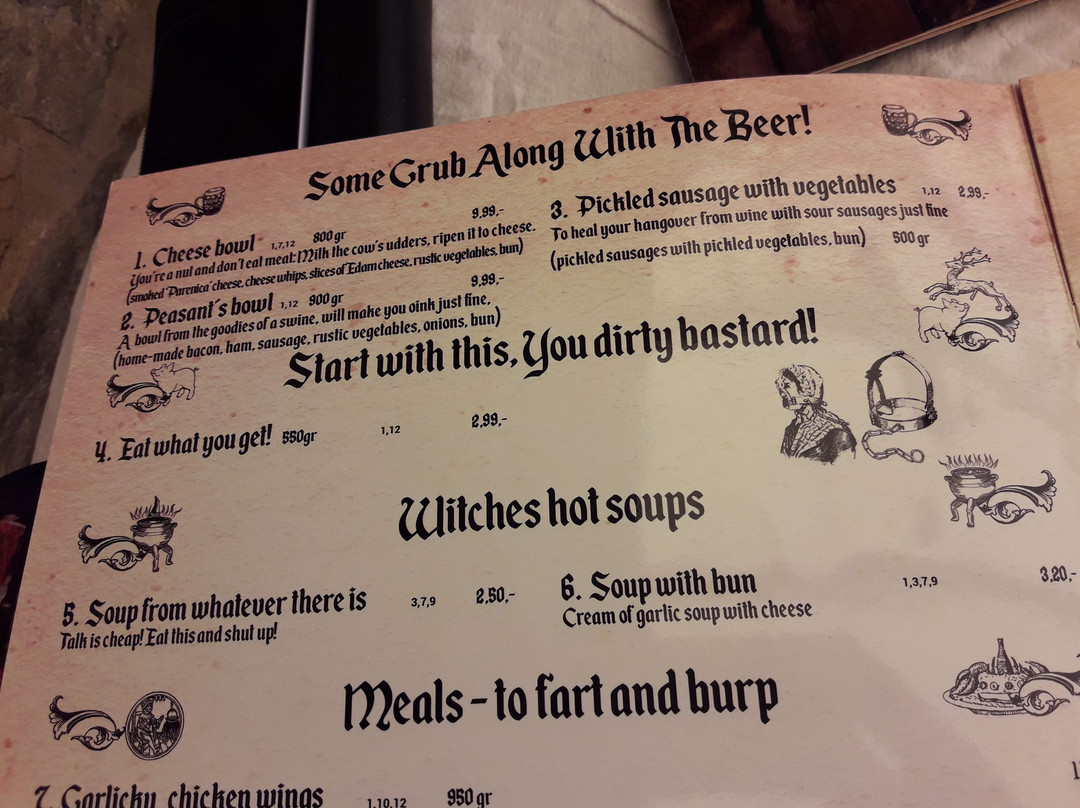 Some Grub Along With The Beer!
9,99,-
1. Cheese bowl 1,7,12 800 gr
You're a nut and don't eat meat: Milk the cow's udders, ripen it to cheese.
(smoked 'Parenica' cheese, cheese whips, slices of Edam cheese, rustic vegetables, bun)
9,99,-
2. Peasant's bowl 1,12 900 gr
A bowl from the goodies of a swine, will make you oink just fine,
(home-made bacon, ham, sausage, rustic vegetables, onions, bun)
3. Pickled sausage with vegetables 1,12 2,99,-
To heal your hangover from wine with sour sausages just fine
(pickled sausages with pickled vegetables, bun) 500 gr
Start with this, You dirty bastard!
4. Eat what you get! 550gr 1,12 2,99,-
Witches hot soups
5. Soup from whatever there is 3,7,9 2,50,-
Talk is cheap! Eat this and shut up!
6. Soup with bun 1,3,7,9 3,20,-
Cream of garlic soup with cheese
Meals - to fart and burp
7. Garlicky chicken wings 1,10,12 950 gr